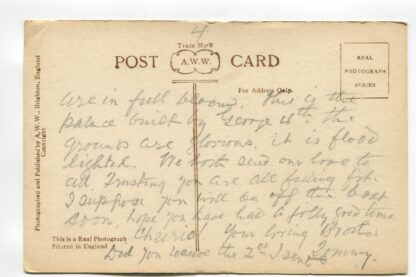 4
Trade Mark
POST A.W.W. CARD
For Address Only.
REAL
PHOTOGRAPH
SERIES
Photographed and Published by A.W.W., Brighton, England
Copyright
are in full bloom. This is the
palace built by George 4th. The
grounds are glorious, it is flood
lighted. We both send our love to
all. Trusting you are all feeling fit.
I suppose you will be off the boat
soon, hope you have had a jolly good time
Cheerio! Your loving Brother
Tommy.
Did you receive the 2nd I sent
This is a Real Photograph
Printed in England